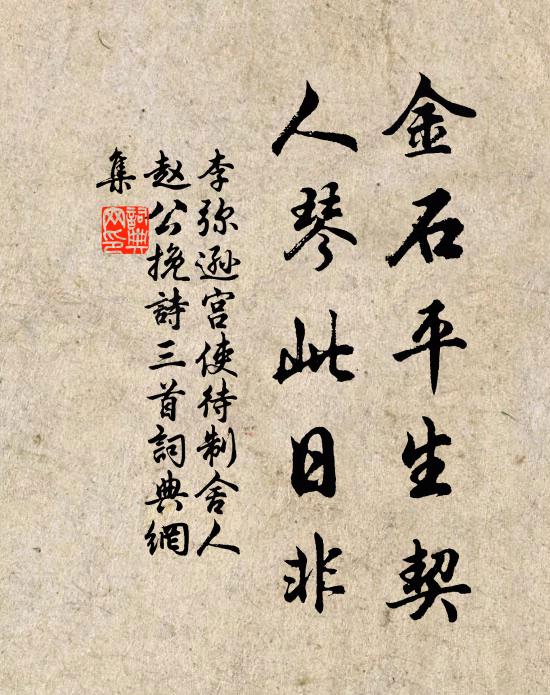 金石平生契
人琴此日非
李弥逊宫使待制舍人
赵公挽詩三首詞典網
集
詞典网印